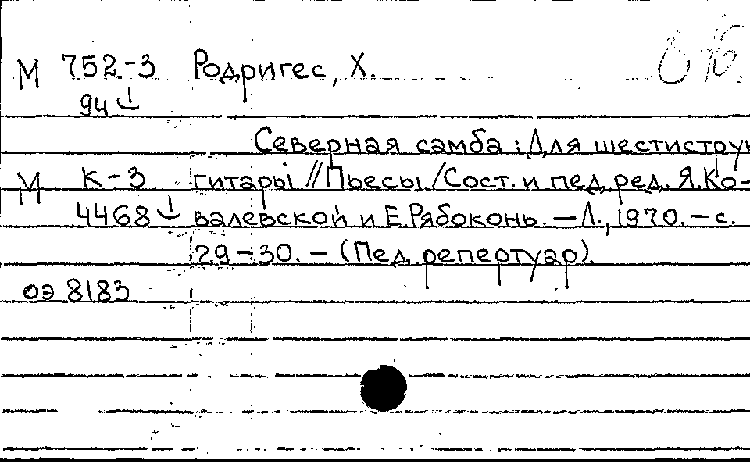 М 752-3 Родригес, Х.
94↓
Северная самба : Для шестистру
М К-3 гитары // Пьесы / Сост. и пед. ред. Я. Ко-
4468↓ валевской и Е. Рябоконь. – Л., 1970. – с.
29-30. – (Пед. репертуар).
оэ 8183